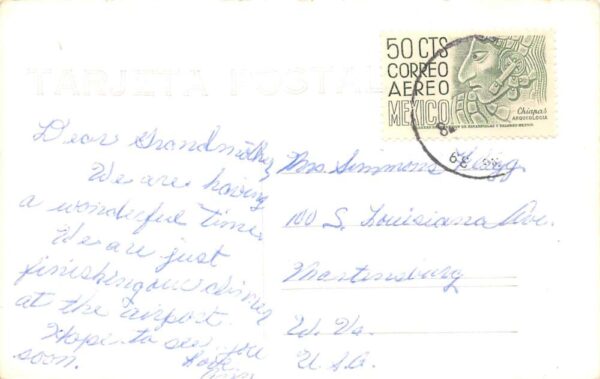 TARJETA POSTAL
50 CTS
CORREO
AEREO
MEXICO
Chiapas
ARQUEOLOGIA
Dear Grandmother,
We are having
a wonderful time.
We are just
finishing our dinner
at the airport.
Hope to see you
soon.
Love,
Mrs. Simmons
100 S. Louisiana Ave.
Martinsburg
W. Va.
U.S.A.